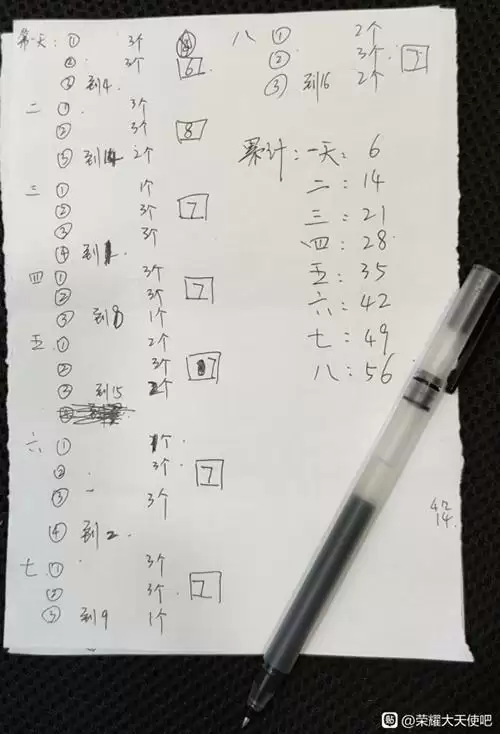 第一天: ① 3个 ④
② 3个 6
③ 到4
二 ① 3个
② 3个 8
③ 到14 2个
三 ① 1个
② 3个 7
③ 3个
④ 到1
四 ① 3个
② 3个 7
③ 到8 1个
五 ① 2个
② 3个 7
③ 到15 2个
六 ① 1个
② 3个 7
③ 3个
④ 到2
七 ① 3个
② 3个 7
③ 到9 1个
八 ① 2个
② 3个 7
③ 到16 2个
累计: 一天: 6
二: 14
三: 21
四: 28
五: 35
六: 42
七: 49
八: 56
42
14
贴 @荣耀大天使吧